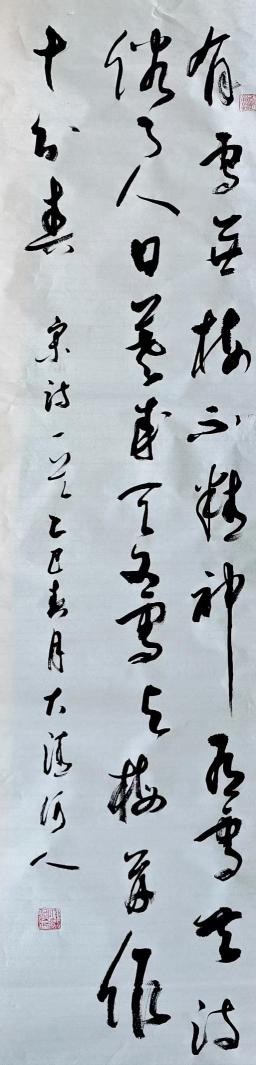 有雪無梅不精神有雪無诗
俗了人日暮成天又雪与梅并作
十分春 宋诗一首乙巳春月大河人